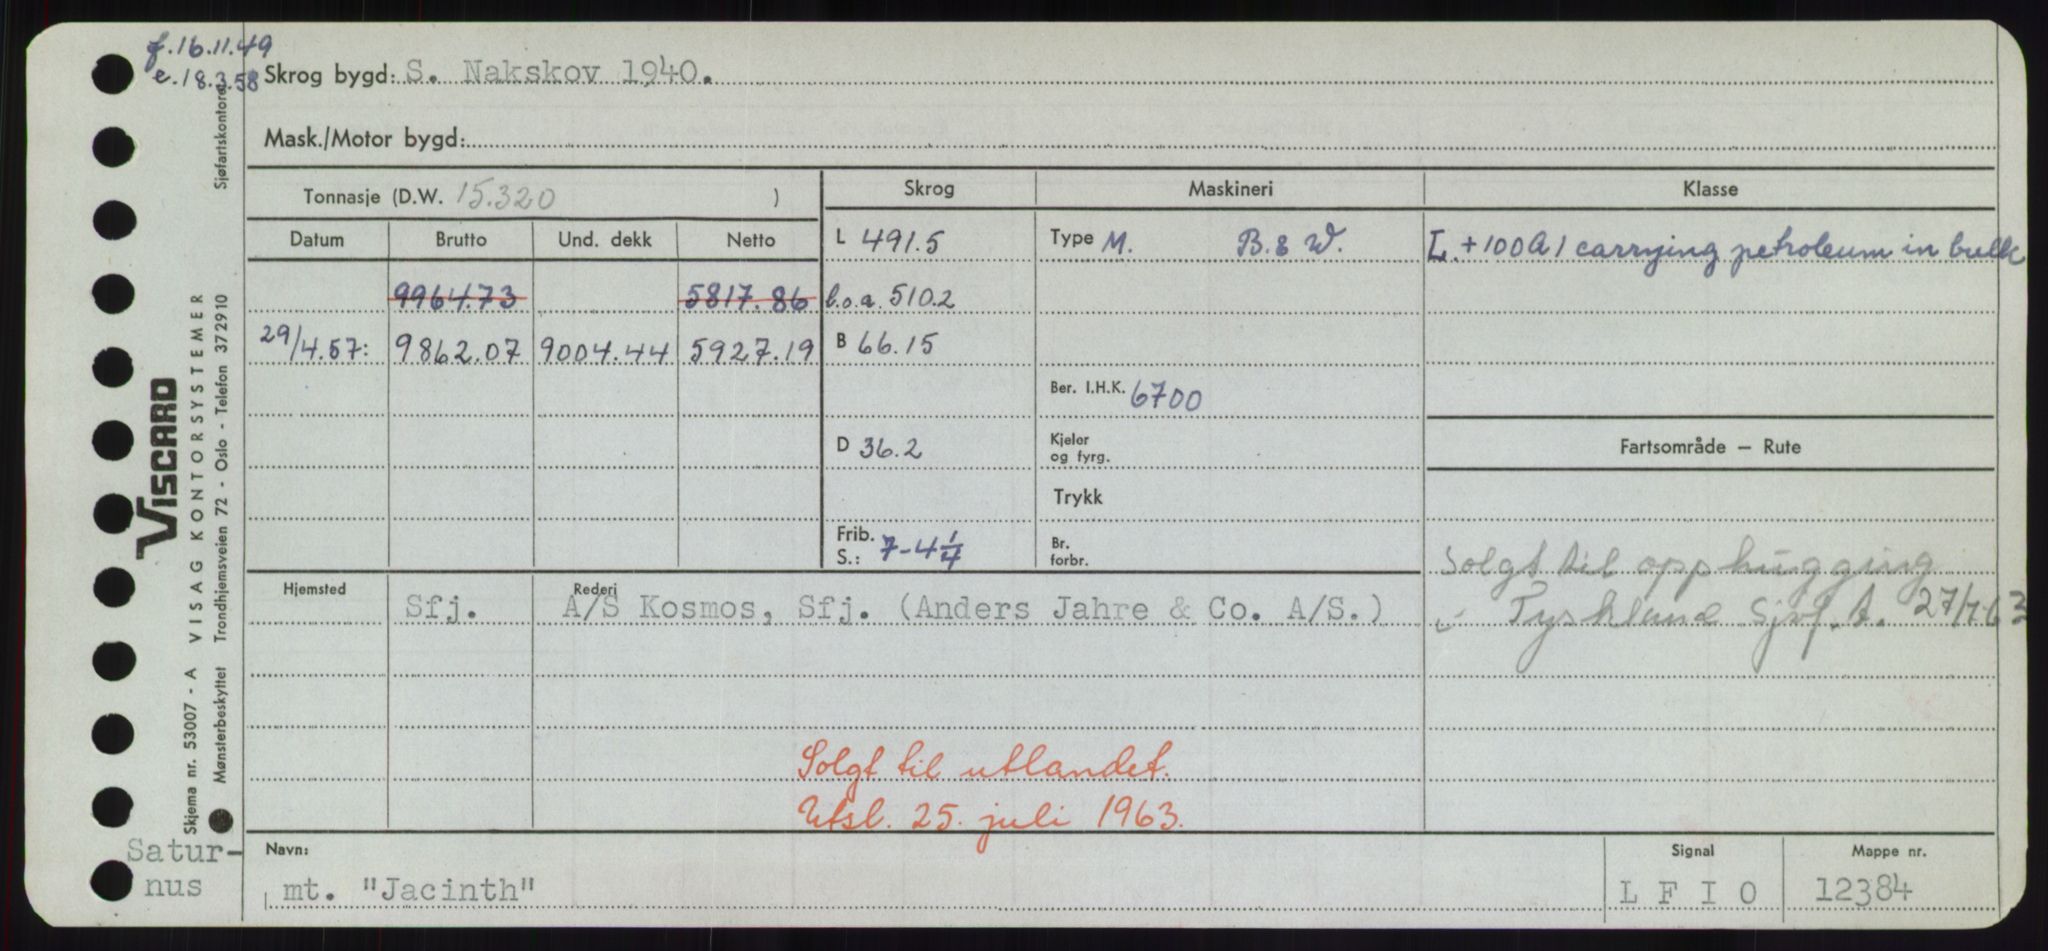 f. 16.11.49
e. 18.3.58
Skrog bygd: S. Nakskov 1940.
Mask./Motor bygd:
Tonnasje (D.W. 15.320 )
Skrog
Maskineri
Klasse
Datum
Brutto
Und. dekk
Netto
L 491.5
Type M. B. & W.
L. +100A1 carrying petroleum in bulk
9964.73
5817.86
l.o.a. 510.2
29/4.57: 9862.07 9004.44 5927.19
B 66.15
Ber. I.H.K. 6700
D 36.2
Kjeler
og fyrg.
Fartsområde – Rute
Trykk
Frib.
S.: 7-4 1/4
Br.
forbr.
Solgt til opphugging
i Tyskland Sjøf. t. 27/7-63
Hjemsted
Rederi
Sfj.
A/S Kosmos, Sfj. (Anders Jahre & Co. A/S.)
Solgt til utlandet.
Utsl. 25. juli 1963.
Satur-
nus
Navn:
mt. "Jacinth"
Signal
L F I O
Mappe nr.
12384
VISCARD
Skjema nr. 53007 - A VISAG KONTORSYSTEMER
Mønsterbeskyttet Trondhjemsveien 72 - Oslo - Telefon 372910 Sjøfartskontoret